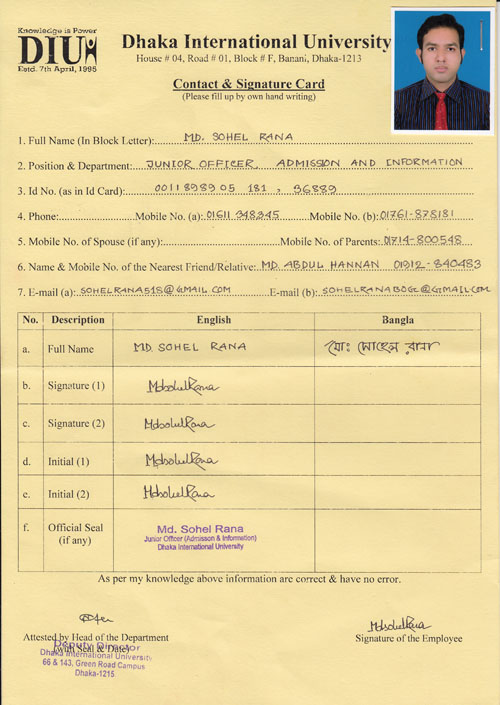 Knowledge is Power
DIU
Estd. 7th April, 1995
Dhaka International University
House # 04, Road # 01, Block # F, Banani, Dhaka-1213
Contact & Signature Card
(Please fill up by own hand writing)
1. Full Name (In Block Letter): MD. SOHEL RANA
2. Position & Department: JUNIOR OFFICER, ADMISSION AND INFORMATION
3. Id No. (as in Id Card): 0011 8989 05 181 , 96889
4. Phone: Mobile No. (a): 01611 348345 Mobile No. (b): 01761-878181
5. Mobile No. of Spouse (if any): Mobile No. of Parents: 01714-800548
6. Name & Mobile No. of the Nearest Friend/Relative: MD. ABDUL HANNAN 01912-840483
7. E-mail (a): SOHELRANA518@GMAIL.COM E-mail (b): @GMAIL.COM
No. Description English Bangla
a. Full Name MD. SOHEL RANA মোঃ সোহেল রানা
b. Signature (1) MdsohelRana
c. Signature (2) MdsohelRana
d. Initial (1) MdsohelRana
e. Initial (2) MdsohelRana
f. Official Seal (if any) Md. Sohel Rana
Junior Officer (Admisson & Information)
Dhaka International University
As per my knowledge above information are correct & have no error.
MdsohelRana
Attested by Head of the Department Signature of the Employee
(with Seal & Date)
Deputy Director
Dhaka International University
66 & 143, Green Road Campus
Dhaka-1215